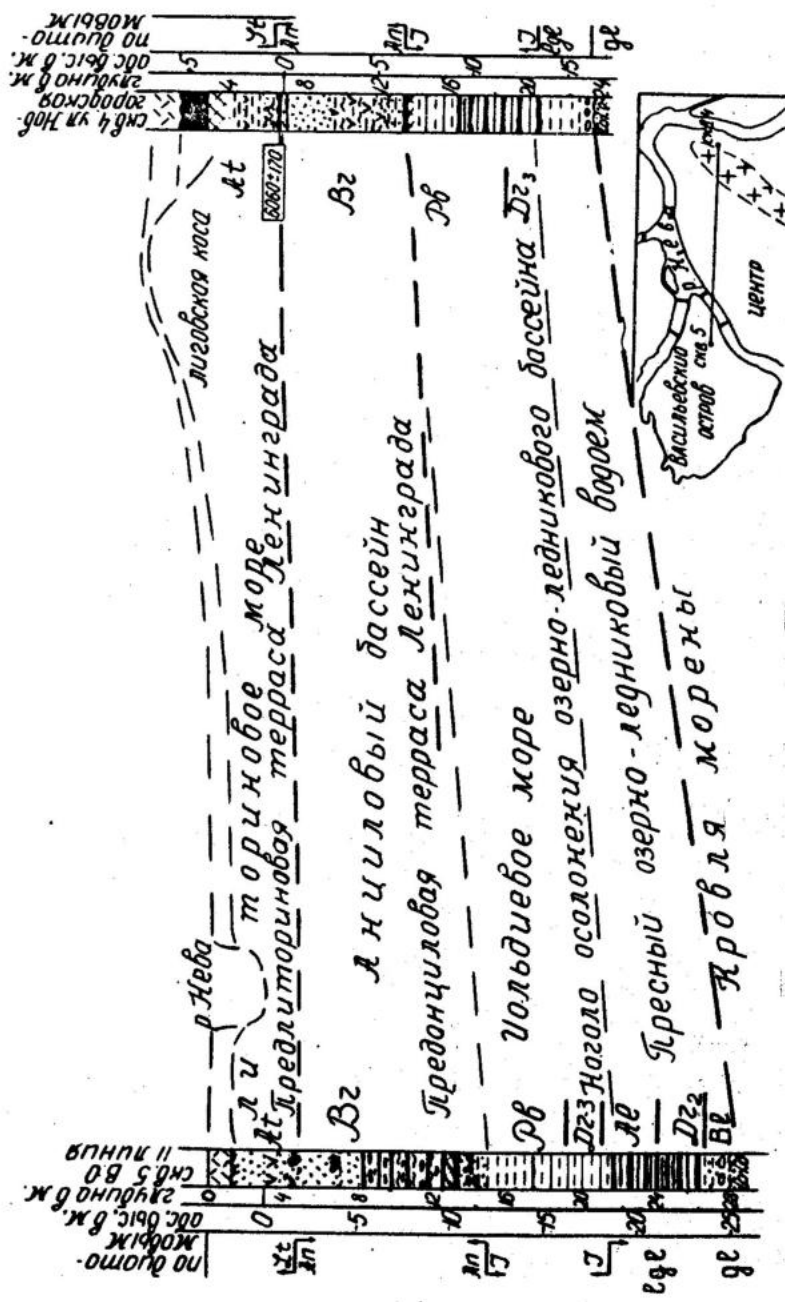 по диато-
мовым
абс. выс. в м.
глубина в м.
скв 5 В.О
11 линия
0
4
8
12
16
20
24
28
0
-5
-10
-15
-20
-25
Lt
An
An
J
J
lgl
gl
р Нева
литориновое море
At
Предлиториновая терраса Ленинграда
Вг
Анциловый бассейн
Преданциловая терраса Ленинграда
Рв
Иольдиевое море
Dг-3
Начало осолонения озерно-ледникового бассейна Dг3
Al
Пресный озерно-ледниковый водоем
Dг2
Вl
Кровля морены
лиговская коса
At
6060±170
Вг
Рв
скв 4 ул Нов-
городская
глубина в м.
абс выс. в м.
по диато-
мовым
4
8
12
16
20
24
5
0
-5
-10
-15
Lt
An
An
J
J
lgl
gl
Васильевский
остров
скв 5
р Нева
скв 4
центр